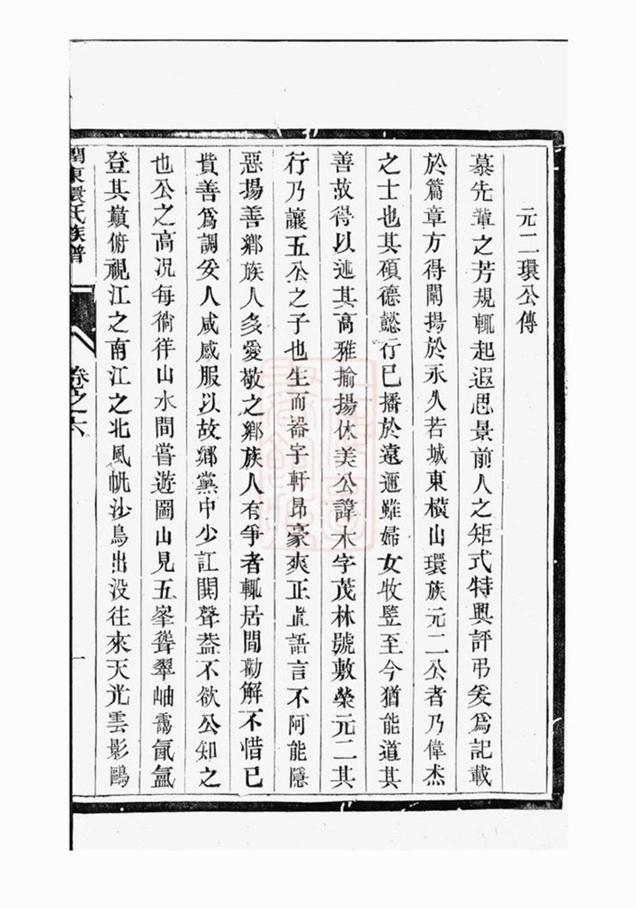 元二環公傳
慕先輩之芳規輒起遐思景前人之矩式特興評弔爰爲記載
於篇章方得闡揚於永久若城東橫山環族元二公者乃偉杰
之士也其碩德懿行已播於遠邇雖婦女牧豎至今猶能道其
善故得以述其高雅揄揚休美公諱木字茂林號敷榮元二其
行乃讓五公之子也生而器宇軒昂豪爽正直語言不阿能隱
惡揚善鄉族人多愛敬之鄉族人有爭者輒居間勸解不惜已
貲善爲調妥人咸感服以故鄉黨中少訌鬨聲葢不欲公知之
也公之高况每徜徉山水間嘗遊圌山見五峯聳翠岫靄氤氳
登其巔俯視江之南江之北風帆沙鳥出没往來天光雲影鷗
閏東環氏族譜
卷之六
一